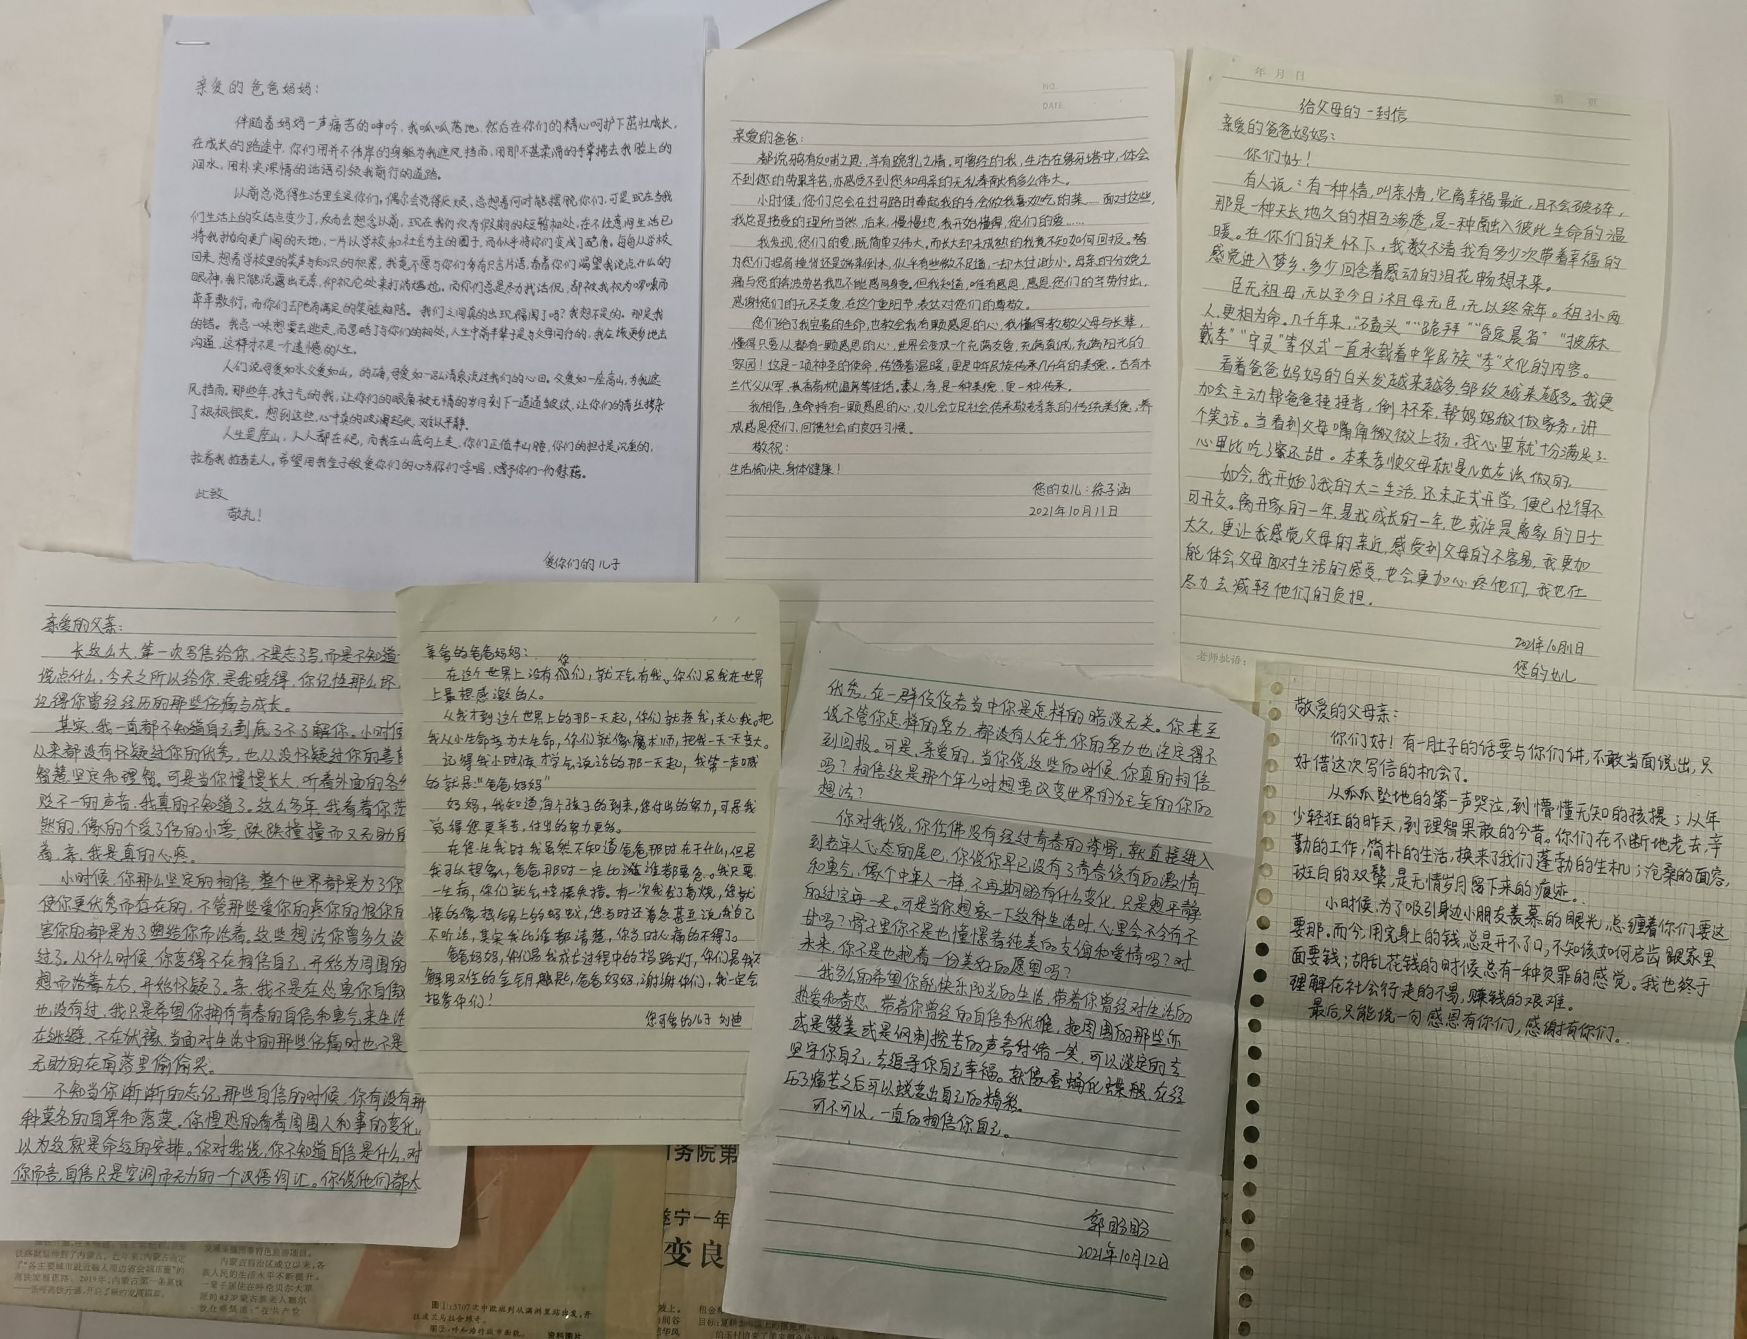 亲爱的爸爸妈妈：
伴随着妈妈一声痛苦的呻吟，我呱呱落地，然后在你们的精心呵护下茁壮成长，
在成长的路途中，你们用并不伟岸的身躯为我遮风挡雨，用那不甚柔滑的手掌拂去我脸上的
泪水，用朴实深情的话语引领我前行的道路。
以前总觉得生活里全是你们，偶尔会觉得厌烦，总想着何时能摆脱你们，可是现在当我
们生活上的交结点变少了，反而去想念从前，现在我们仅有假期的短暂相处，在不经意间生活已
将我抛向更广阔的天地，一片以学校和社会为主的圈子，而似乎将你们变成了配角，每每从学校
回来，想着学校里的笑声与知识的积累，我竟不愿与你们多有只言片语，看着你们渴望我说点什么的
眼神，我只能流露出无奈，
我们之间真的出现隔阂了吗？我想不是的，那是我
的错。我总一味想要去逃走，而忽略了与你们的相处，人生中前半辈子是与父母同行的，我应该更多地去
沟通，这样才不是一个遗憾的人生。
人们说母爱如水父爱如山，的确，母爱如一汩汩清泉流过我们的心田。父爱如一座高山，为我遮
风挡雨，那些年，孩子气的我，让你们的眼角被无情的岁月刻下一道道皱纹，让你们的青丝掺杂
了根根银发。想到这些，心中真的波澜起伏，难以平静。
人生是座山，人人都在爬，而我在山底向上走，你们正值半山腰，你们的担子是沉重的，
拉着我拉着老人。希望用我
此致
敬礼！
爱你们的儿子
NO.
DATE
亲爱的爸爸：
都说鸦有反哺之恩，羊有跪乳之情。可曾经的我，生活在象牙塔中，体会
不到您的劳累辛苦，亦感受不到您和母亲的无私奉献有多么伟大。
小时候，您们总会在过马路时牵起我的手，会做我喜欢吃的菜……面对这些，
我总是接受的理所当然，后来，慢慢地，我开始懂得，您们的爱……
我发现，您们的爱，既简单又伟大，而长大却未成熟的我竟不知如何回报。替
为您们捏肩捶背还是端茶倒水，似乎有些微不足道，一切太过渺小。母亲的分娩之
痛与您的奔波劳苦我也不能感同身受。但我知道，唯有感恩，感恩您们的辛劳付出，
感谢您们的无尽关爱，在这个重阳节，表达对你们的尊敬。
您们给了我宝贵的生命，也教会我有颗感恩的心，我懂得孝敬父母与长辈，
懂得只要人人都有一颗感恩的心，世界会变成一个充满友爱，充满真诚，充满阳光的
家园！这是一项神圣的使命，传递着温暖，更是中华民族传承几千年的美德。古有木
兰代父从军，黄香扇枕温席等佳话。素人，孝，是一种美德，更一种传承。
我相信，生命将有一颗感恩的心，女儿会立足社会传承敬老孝亲的传统美德，养
成感恩您们，回馈社会的良好习惯。
敬祝：
生活愉快，身体健康！
您的女儿：徐子涵
2021年10月11日
年 月 日
第 页
给父母的一封信
亲爱的爸爸妈妈：
你们好！
有人说：有一种情，叫亲情，它离幸福最近，且不会破碎，
那是一种天长地久的相互渗透，是一种融入彼此生命的温
暖。在你们的关怀下，我数不清我有多少次带着幸福的
感觉进入梦乡，多少回含着感动的泪花畅想未来。
臣无祖母，无以至今日；祖母无臣，无以终余年。祖孙两
人，更相为命。几千年来，“磕头”“跪拜”“昏定晨省”“披麻
戴孝”“守灵”等仪式一直承载着中华民族“孝”文化的内容。
看着爸爸妈妈的白头发越来越多，皱纹越来越多。我更
加会主动帮爸爸捶捶背，倒杯茶，帮妈妈做做家务，讲
个笑话。当看到父母嘴角微微上扬，我心里就十分满足了，
心里比吃了蜜还甜。本来孝顺父母就是儿女应该做的。
如今，我开始了我的大二生活，还未正式开学，便已忙得不
可开交。离开家的一年，是我成长的一年，也或许是离家的日子
太久，更让我感觉父母的亲近，感受到父母的不容易，我更加
能体会父母面对生活的感受，也会更加心疼他们，我也在
尽力去减轻他们的负担。
2021年10月11日
您的女儿
老师批语：
亲爱的父亲：
长这么大，第一次写信给你，不是忘了写，而是不知道
说点什么，今天之所以给你，是我晓得，你记性那么坏，
记得你曾经经历的那些伤痛与成长。
其实，我一直都不知道自己到底了不了解你。小时候
从来都没有怀疑过你的优秀，也从没怀疑过你的善良
智慧坚定和理智。可是当你慢慢长大，听着外面的各
贬不一的声音，我真的不知道了。这么多年，我看着你茫
然的，像的个受了伤的小兽，跌跌撞撞而又无助
着，亲，我是真的心疼。
小时候，你那么坚定的相信，整个世界都是为了你
使你更优秀而存在的，不管那些爱你的疼你的恨你
害你的都是为了塑给你而活着。这些想法你曾多久没
过了。从什么时候，你变得不在相信自己，开始为周围的
想而活着左右，开始怀疑了。亲，我不是在怂恿你自傲
也没有过，我只是希望你拥有青春的自信和勇气，来生活
在逃避，不在犹豫，当面对生活中的那些伤痛时也不是
无助的在角落里偷偷哭。
不知当你渐渐的忘记，那些自信的时候，你有没有
种莫名的自卑和落寞。你惶恐的看着周围人和事的变化，
以为这就是命运的安排。你对我说，你不知道自信是什么，对
你而言，自信只是空洞而无力的一个汉语词汇。你说他们都太
亲爱的爸爸妈妈：
在这个世界上没有您们，就不会有我。你们是我在世界
上最想感激的人。
从我才到这个世界上的那一天起，你们就疼我，关心我。把
我从小生命变为大生命，你们就像魔术师，把我一天天变大。
记得我小时候才学会说话的那一天起，我第一声喊
的就是“爸爸妈妈”
妈妈，我知道每个孩子的到来，您付出的努力，可是我
觉得您更辛苦，付出的努力更多。
在您生我时我虽然不知道爸爸那时在干什么，但是
我可以想象，爸爸那时一定比谁谁都要急。我只要
一生病，你们就会惊慌失措。有一次我发了高烧，您就
像热锅上的蚂蚁，您当时还着急甚至说我自己
不听话，其实我比谁都清楚，你当时心痛的不得了。
爸爸妈妈，你们是我成长过程中的指路灯，你们是我
解开文体的金钥匙，爸爸妈妈，谢谢你们，我一定会
报答你们！
您可爱的儿子 刘迪
优秀，在一群佼佼者当中你是怎样的暗淡无关。你甚至
说不管你怎样的努力，都没有人在乎，你的努力也注定得不
到回报。可是，亲爱的，当你说这些的时候，你真的相信
吗？相信这是那个年少时想要改变世界的狂妄的你的
想法？
你对我说，你仿佛没有经过青春的洗礼，就直接进入
到老年人心态的尾巴，你说你早已没有了青春该有的激情
和勇气，像个中年人一样，不再期盼有什么变化，只是想平静
的过完每一天。可是当你想象一下这种生活时，心里会不会有不
甘吗？骨子里你不是也憧憬着纯美的友谊和爱情吗？对
未来，你不是也抱着一份美好的愿望吗？
我多么的希望你能快乐阳光的生活，带着你曾经对生活的
热爱和眷恋，带着你曾经的自信和优雅，把周围的那些亦
或是赞美或是讽刺挖苦的声音付诸一笑，可以淡定的去
坚守你自己，去追寻你自己幸福。就像蚕蛹化蝶般，在经
历了痛苦之后可以蜕变出自己的精彩。
可不可以，一直的相信你自己。
郭盼盼
2021年10月12日
敬爱的父母亲：
你们好！有一肚子的话要与你们讲，不敢当面说出，只
好借这次写信的机会了。
从呱呱坠地的第一声哭泣，到懵懂无知的孩提；从年
少轻狂的昨天，到理智果敢的今昔。你们在不断地老去，辛
勤的工作，简朴的生活，换来了我们蓬勃的生机；沧桑的面容，
斑白的双鬓，是无情岁月留下来的痕迹。
小时候，为了吸引身边小朋友羡慕的眼光，总缠着你们要这
要那。而今，用完身上的钱，总是开不了口，不知该如何启齿跟家里
面要钱；胡乱花钱的时候总有一种负罪的感觉。我也终于
理解在社会行走的不易，赚钱的艰难。
最后，只能说一句感恩有你们，感谢有你们。
务院第
遂宁一年
变良
资料图片